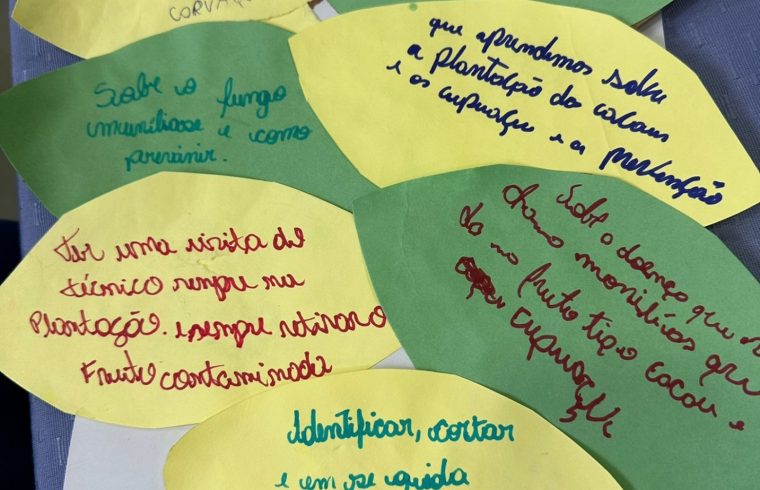 CORVA
Sobe o fungo
imuniliase e como
previnir.
que aprendemos sobre
a plantação do cacaus
e os cupuaçu e a prevenção
Ter uma visita del
técnico sempre na
Plantação. e sempre retirar o
Fruto contaminada
Sobr o doença que se
chamo monilíos que
da no fruto tipo cacau e
cupuaçu
Identificar, cortar
e em se quida